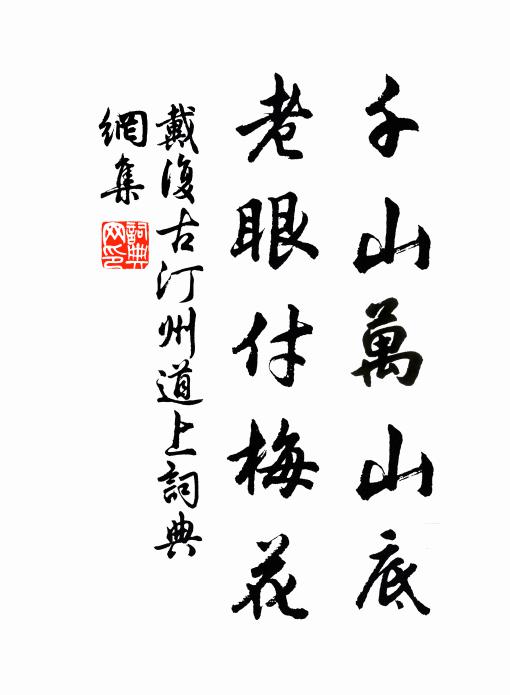 千山萬山底
老眼付梅花
戴復古汀州道上詞典
網集
詞典
网印